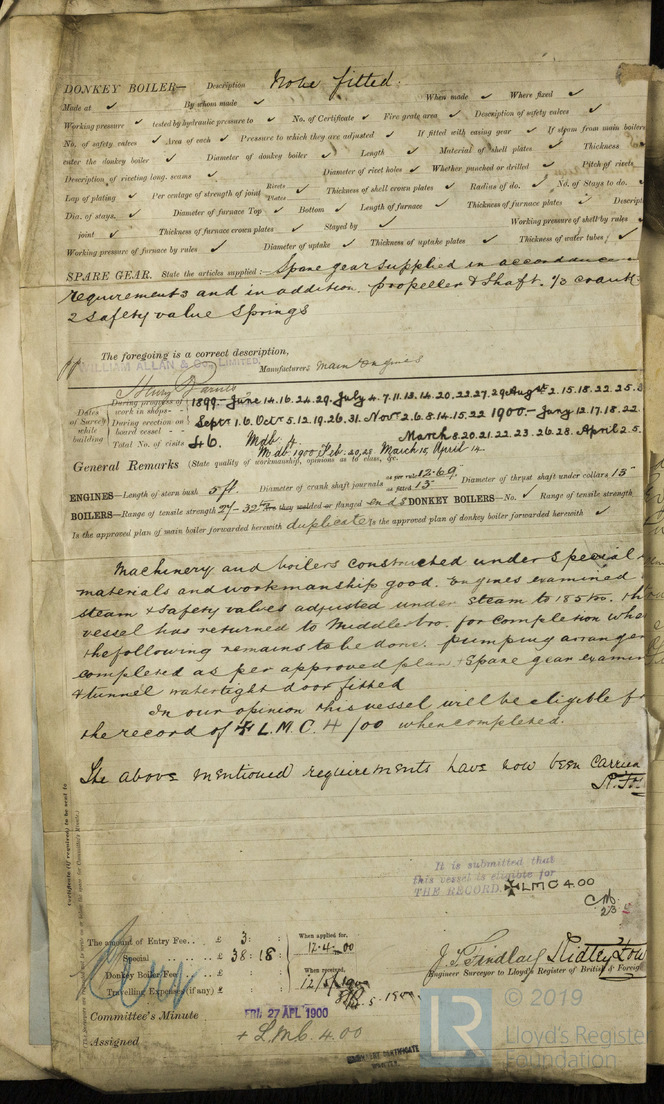 DONKEY BOILER— Description None fitted.
Made at ✓ By whom made ✓ When made ✓ Where fixed ✓
Working pressure ✓ tested by hydraulic pressure to ✓ No. of Certificate ✓ Fire grate area ✓ Description of safety valves ✓
No. of safety valves ✓ Area of each ✓ Pressure to which they are adjusted ✓ If fitted with easing gear ✓ If steam from main boilers
enter the donkey boiler ✓ Diameter of donkey boiler ✓ Length ✓ Material of shell plates ✓ Thickness
Description of riveting long. seams ✓ Diameter of rivet holes ✓ Whether punched or drilled ✓ Pitch of rivets
Lap of plating ✓ Per centage of strength of joint Rivets Plates ✓ Thickness of shell crown plates ✓ Radius of do. ✓ No. of Stays to do.
Dia. of stays. ✓ Diameter of furnace Top ✓ Bottom ✓ Length of furnace ✓ Thickness of furnace plates ✓ Descript
joint ✓ Thickness of furnace crown plates ✓ Stayed by ✓ Working pressure of shell by rules ✓
Working pressure of furnace by rules ✓ Diameter of uptake ✓ Thickness of uptake plates ✓ Thickness of water tubes ✓
SPARE GEAR. State the articles supplied:— Spare gear supplied in accordance
requirements and in addition. propeller & Shaft. 1/3 crank
2 Safety valve Springs
The foregoing is a correct description,
pp WILLIAM ALLAN & CO. LIMITED. Manufacturers main Engines
Henry
Dates of Survey while building
During progress of work in shops— 1899.- June 14.16.24.29. July 4.7.11.13.14.20.22.27.29. Augst 2.15.18.22.25.
During erection on board vessel— Septr 1.6. Octr 5.12.19.26.31. Novr 2.6.8.14.15.22 1900.- Jany 12.17.18.22.
Total No. of visits 46. Mdb. 4. March 8.20.21.22.23.26.28. April 2.5.
Mdb 1900 Feb. 20,28 March 15, April 14.
General Remarks (State quality of workmanship, opinions as to class, &c.
ENGINES—Length of stern bush 5 ft. Diameter of crank shaft journals as per rule 12.69" as fitted 13" Diameter of thrust shaft under collars 13"
BOILERS—Range of tensile strength 27-32 Are they welded or flanged ends DONKEY BOILERS—No. ✓ Range of tensile strength
Is the approved plan of main boiler forwarded herewith duplicate Is the approved plan of donkey boiler forwarded herewith ✓
Machinery and boilers constructed under special
materials and workmanship good. Engines examined
steam & Safety valves adjusted under steam to 185 lbs. the
vessel has returned to Middlesbro. for completion whe
the following remains to be done. pumping arrange
completed as per approved plan, & Spare gear examin
& tunnel watertight door fitted
In our opinion this vessel will be eligible f
the record of ✠ L.M.C. 4/00 when completed.
The above mentioned requirements have now been carried
It is submitted that
this vessel is eligible for
THE RECORD. ✠ LMC 4.00
Certificate (if required) to be sent to
The amount of Entry Fee.. £ 3: : When applied for, 12.4.00
Special .. £ 38:18:
Donkey Boiler Fee .. £ : : When received,
Travelling Expenses (if any) £ : :
J. T. Findlay Ridley
Engineer Surveyor to Lloyd's Register of British & Foreign
Committee's Minute FRI. 27 APL 1900
Assigned + L.M.C. 4.00
MACHINERY CERTIFICATE WRITTEN.
LR © 2019
Lloyd's Register
Foundation